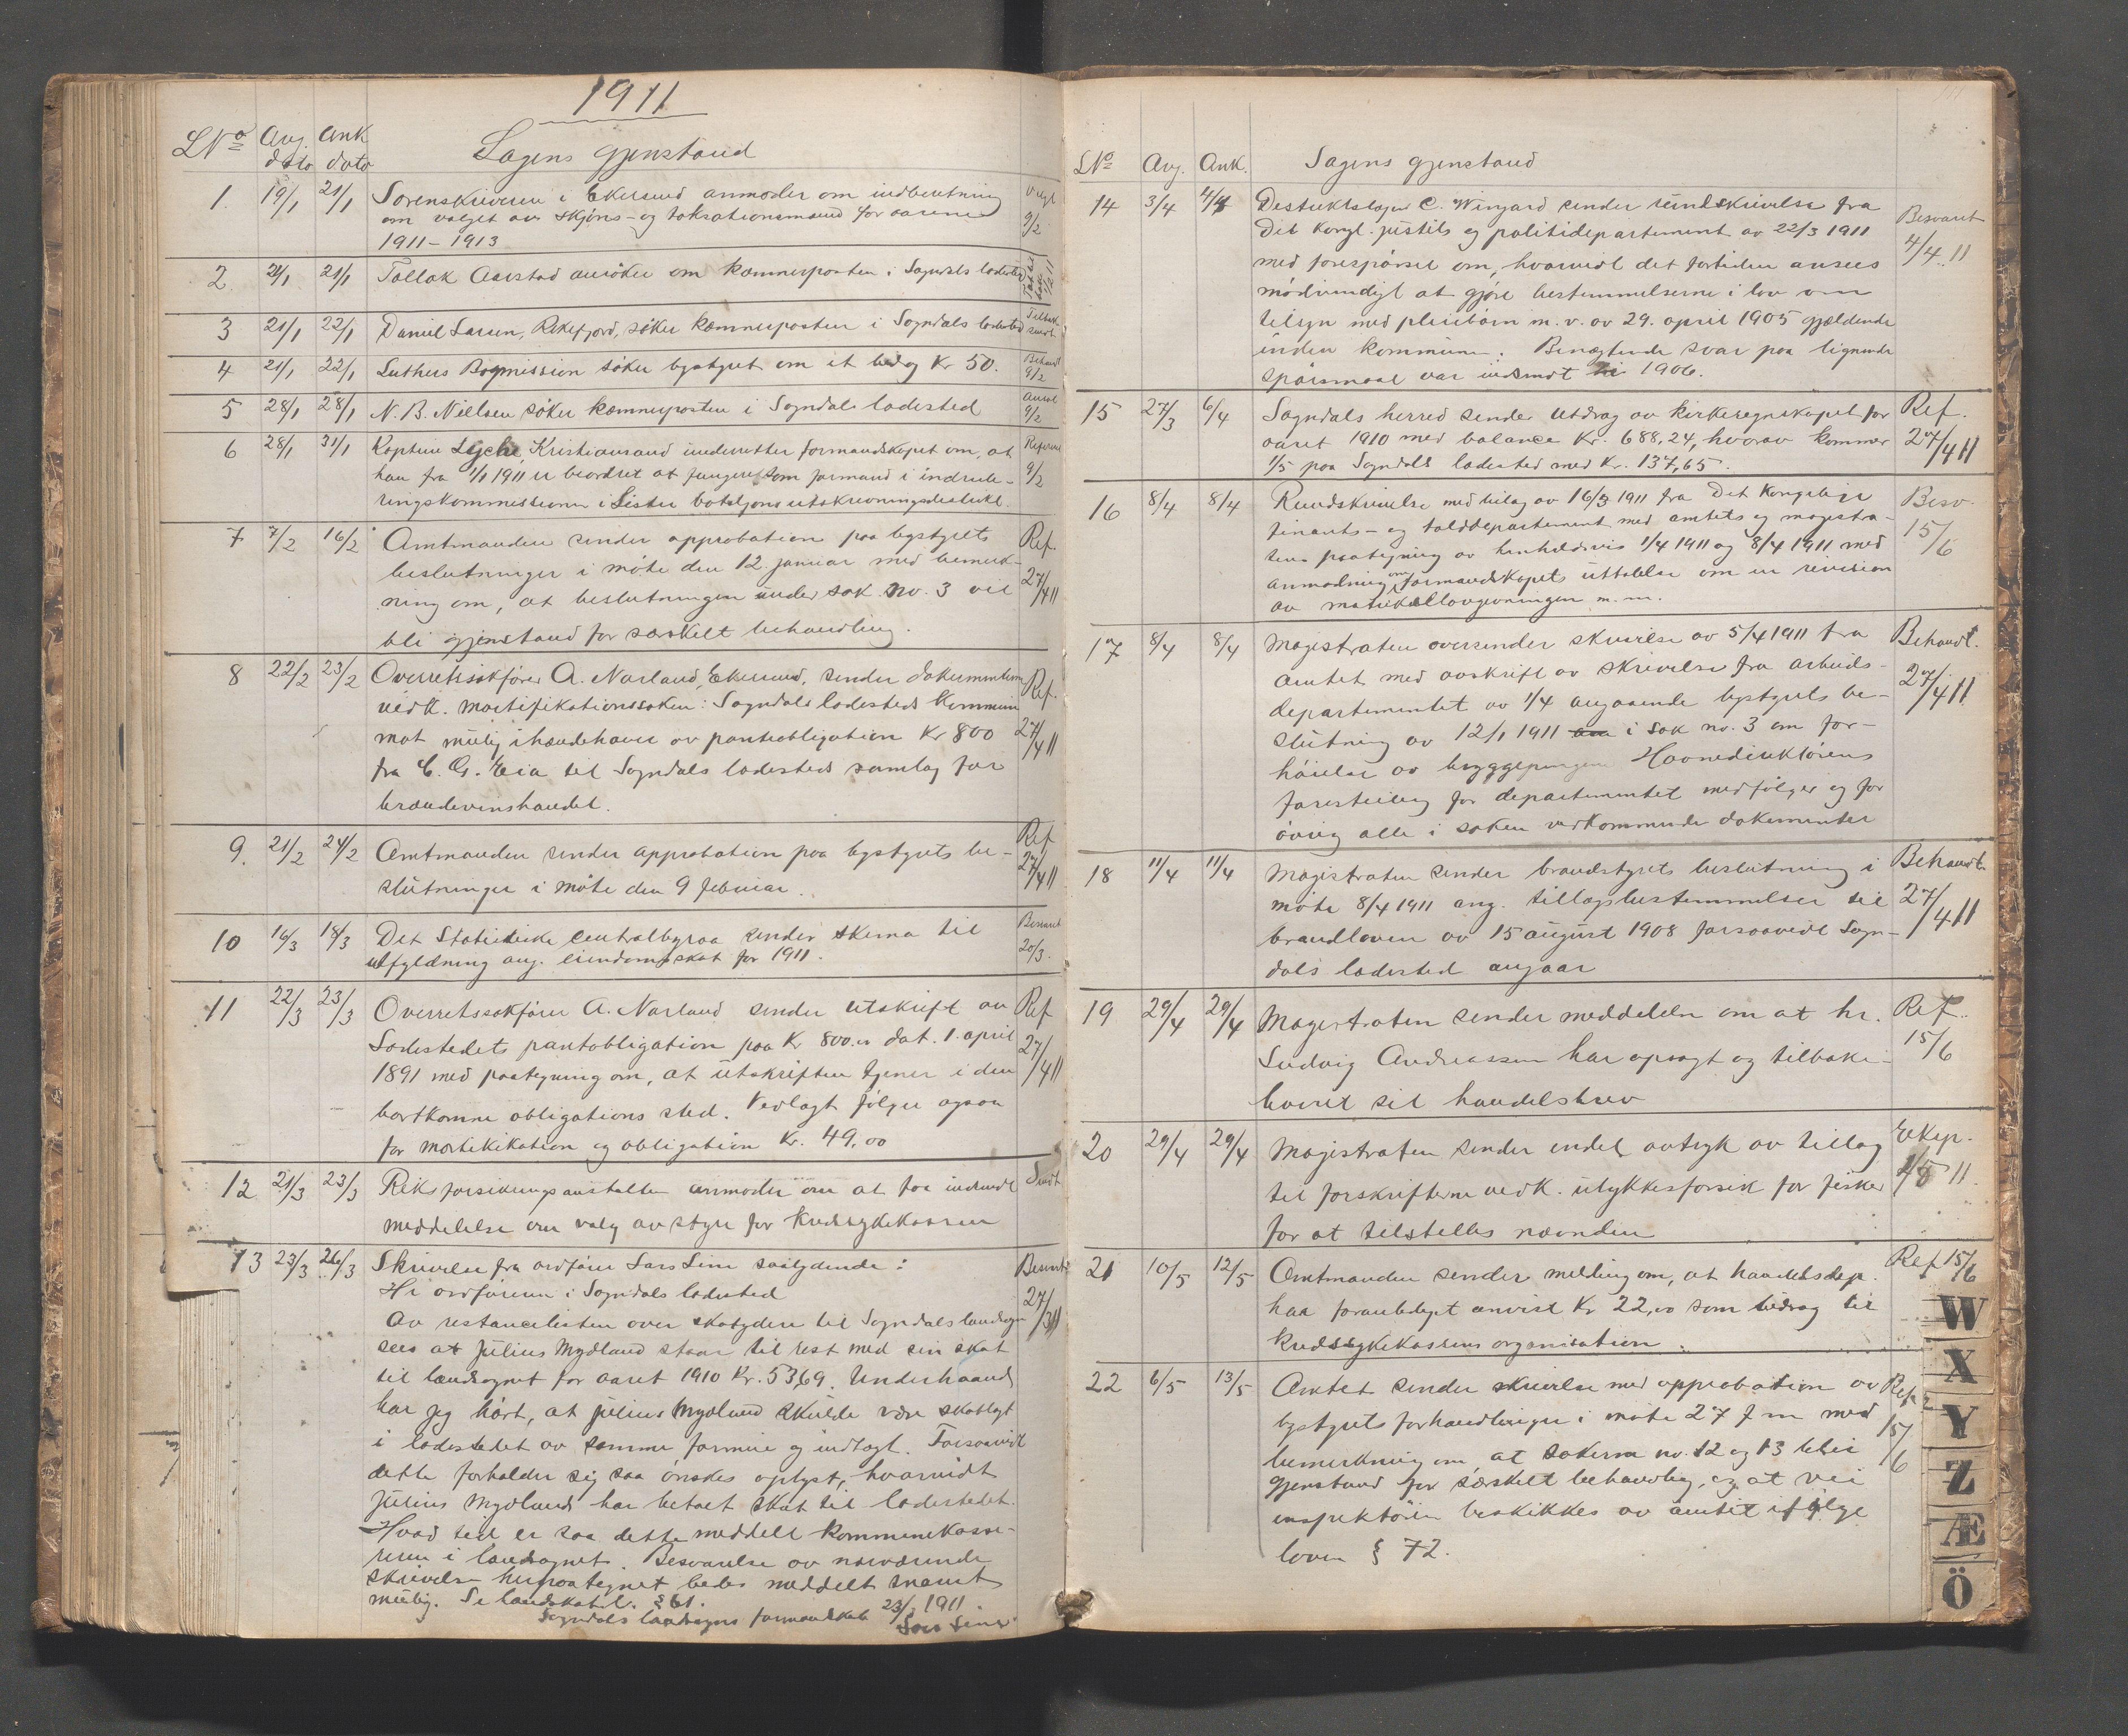 1911
L No Avg. dato Ank dato Sagens gjenstand
1. 19/1 21/1 Sorenskriveren i Ekersund anmoder om indberetning Valgt
om valget av skjöns- og taksationsmænd for aarene 9/2
1911-1913
2 21/1 21/1 Tollak Aarstad ansöker om kæmnerposten i Sogndals ladested
3 21/1 22/1 Daniel Larsen, Rekefjord, söker kæmnerposten i Sogndals ladested
4 21/1 22/1 Luthers Bogmission söker bystyret om et bidrag Kr 50. Behandl 9/2
5 28/1 28/1 N. B. Nielsen söker kæmnerposten i Sogndals ladested 9/2
6 28/1 31/1 Kaptein Lyche, Kristiansand underretter formandskapet om, at Refereret
han fra 1/1 1911 er beordret at fungere som formand i indrule- 9/2
ringskommissionen i Lister bataljons utskrivningsdistrikt.
7 7/2 16/2 Amtmanden sender approbation paa bystyrets Ref.
beslutninger i möte den 12. januar med bemerk- 27/4 11
ning om, at beslutningen under sak no. 3 vil
bli gjenstand for særskilt behandling.
8 22/2 23/2 Overretssakförer A. Narland, Ekersund, sender dokumenterne Ref.
vedk. mortifikationssaken: Sogndals ladesteds kommune
mot mulig ihændehaver av panteobligation Kr 800 27/4 11
fra C. G. Eia til Sogndals ladesteds samlag for
brændevinshandel.
9. 21/2 24/2 Amtmanden sender approbation paa bystyrets be- Ref
slutninger i möte den 9 februar. 27/4 11
10 16/3 18/3 Det Statistiske centralbyraa sender skema til Besvaret
utfyldning ang. eiendomsskat for 1911. 20/3.
11 22/3 23/3 Overretssakförer A. Narland sender utskrift av Ref
Ladestedets pantobligation paa Kr 800.00 dat. 1. april 27/4 11
1891 med paategning om, at utskriften tjener i den
bortkomne obligations sted. Vedlagt fölger ogsaa
for mortikikation og obligation Kr. 49,00
12 21/3 23/3 Riksforsikringsanstalten anmoder om at faa indsendt Sendt
meddelelse om valg av styre for kredssykekassen
13 23/3 26/3 Skrivelse fra ordförer Lars Lene saalydende: Besvart
Hr ordföreren i Sogndals ladested 27/3 11
Av restancelisten over skatydere til Sogndals landsogn
sees at Julius Mydland staar til rest med sin skat
til landsognet for aaret 1910 Kr. 53,69. Underhaanden
har jeg hört, at Julius Mydland skulde være skatlagt
i ladestedet av samme formue og indtægt. Forsaavidt
dette forholder sig saa önskes oplyst, hvorvidt
Julius Mydland har betalt skat til ladestedet.
Hvad tid er saa dette meddelt kommunekasse-
reren i landsognet. Besvarelse av nærværende
skrivelse herpaategnet bedes meddelt snarest
mulig. Se landskatel. § 61.
Sogndals landsogns formandskab 23/3 1911.
Lars Lene
L No Avg. Ank. Sagens gjenstand
14 3/4 4/4 Distriktslæge C. Wingard sender rundskrivelse fra Besvaret
Det kongl. justits og politidepartement av 22/3 1911 4/4 11
med forespörsel om, hvorvidt det fortiden ansees
nödvendigt at gjöre bestemmelserne i lov om
tilsyn med pleiebörn m.v. av 29. april 1905 gjældende
inden kommunen. Benægtende svar paa lignende
spörsmaal var indsendt i 1906.
15 27/3 6/4 Sogndals herred sender utdrag av kirkeregnskapet for Ref.
aaret 1910 med balance Kr. 688,24, hvorav kommer 27/4 11
1/5 paa Sogndals ladested med Kr. 137,65.
16 8/4 8/4 Rundskrivelse med bilag av 16/3 1911 fra Det Kongelige Besv.
finants- og tolddepartement med amtets og magistra- 15/6
tens paategning av henholdsvis 1/4 1911 og 8/4 1911 med
anmodning om formandskapets uttalelse om en revision
av matrikellovgivningen m.m.
17 8/4 8/4 Magistraten oversender skrivelse av 5/4 1911 fra Behandl.
amtet med avskrift av skrivelse fra arbeids- 27/4 11
departementet av 1/4 angaaende bystyrets be-
slutning av 12/1 1911 i sak no. 3 om for-
höielse av bryggepengene Havnedirektörens
forestilling for departementet medfölger og for
övrig alle i saken vedkommende dokumenter
18 11/4 11/4 Magistraten sender brandstyrets beslutning i Behandl.
möte 8/4 1911 ang. tillægsbestemmelser til 27/4 11
brandloven av 15 august 1908 forsaavidt Sogn-
dals ladested angaar
19 29/4 29/4 Magistraten sender meddelelse om at hr. Ref.
Ludvig Andreassen har opsagt og tilbake- 15/6
leveret sit handelsbrev
20 29/4 29/4 Magistraten sender endel avtryk av tillæg Eksp.
til forskrifterne vedk. ulykkesforsik for fisker 1/5 11.
for at tilstilles nævnden
21 10/5 12/5 Amtmanden sender melding om, at handelsdep. Ref 15/6
har foranlediget anvist Kr 22,00 som bidrag til
kredssykekassens organisation.
22 6/5 13/5 Amtet sender skrivelse med approbation av Ref
bystyrets forhandlinger i möte 27 f m med 15/6
bemerkning om, at sakerne no. 12 og 13 blir
gjenstand for særskilt behandling, og at vei
inspektören beskikkes av amtet ifölge
loven § 72.
W
X
Y
Z
Æ
Ö